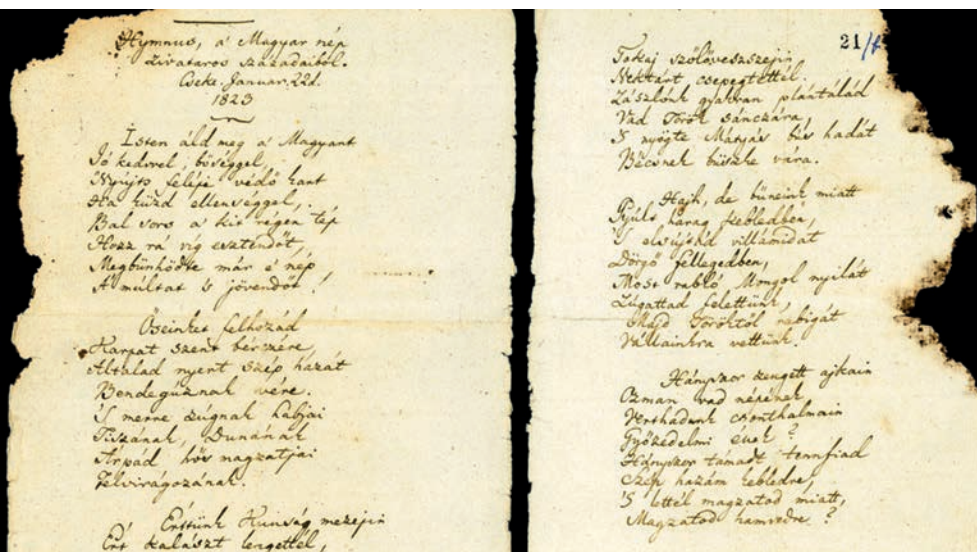 Hymnus, a' Magyar nép
zivataros századaiból.
Cseke. Januar. 22d.
1823
Isten áldd meg a' Magyart
Jó kedvvel, bőséggel,
Nyújts feléje védő kart
Ha küzd ellenséggel,
Bal sors a' kit régen tép
Hozz rá víg esztendőt,
Megbünhődte már e' nép
A' multat 's jövendőt!
Őseinket felhozád
Karpat szent bérczére,
Általad nyert szép hazát
Bendegúznak vére.
'S merre zúgnak habjai
Tiszának, Dunának
Árpád hős magzatjai
Felvirágozának.
Értünk Kunság mezejin
Ért kalászt lengettél,
21/1
Tokaj szőlővesszejin
Nektárt csepegtettél.
Zászlónk gyakran plántálád
Vad Török sánczára,
'S nyögte Mátyás bús hadát
Bécsnek büszke vára.
Hajh, de bűneink miatt
Gyúlt harag kebledben,
'S elsújtád villámidat
Dörgő fellegedben,
Most rabló Mongol nyilát
Zúgattad felettünk,
Majd Töröktől rabigát
Vállainkra vettünk.
Hányszor zengett ajkain
Ozman vad népének
Vert hadunk csonthalmain
Győzedelmi ének?
Hányszor támadt tennfiad
Szép hazám kebledre,
'S lettél magzatod miatt,
Magzatod hamvedre?